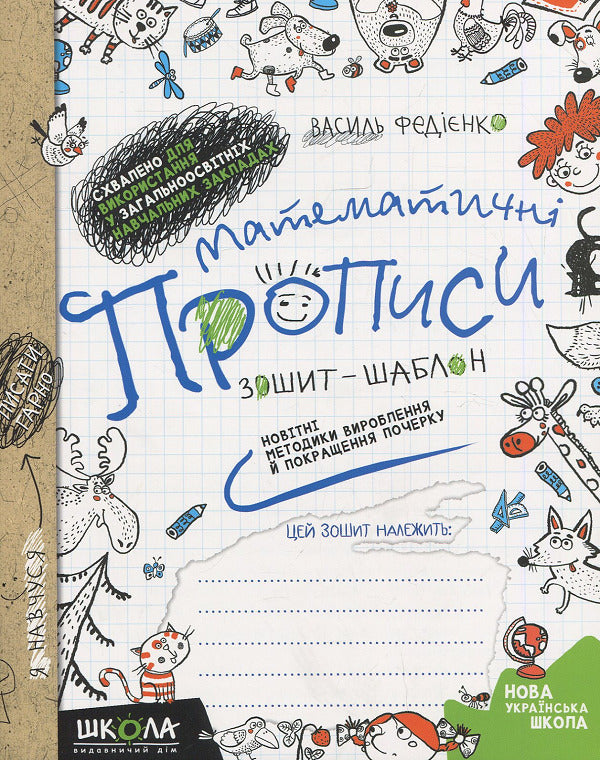 Василь Федієнко
Схвалено для
використання
у загальноосвітніх
навчальних закладах
Математичні
Прописи
Зошит – шаблон
Новітні
методики вироблення
й покращення почерку
Цей зошит належить:
Я навчуся
писати
гарно
ШКОЛА
видавничий дім
НОВА
УКРАЇНСЬКА
ШКОЛА